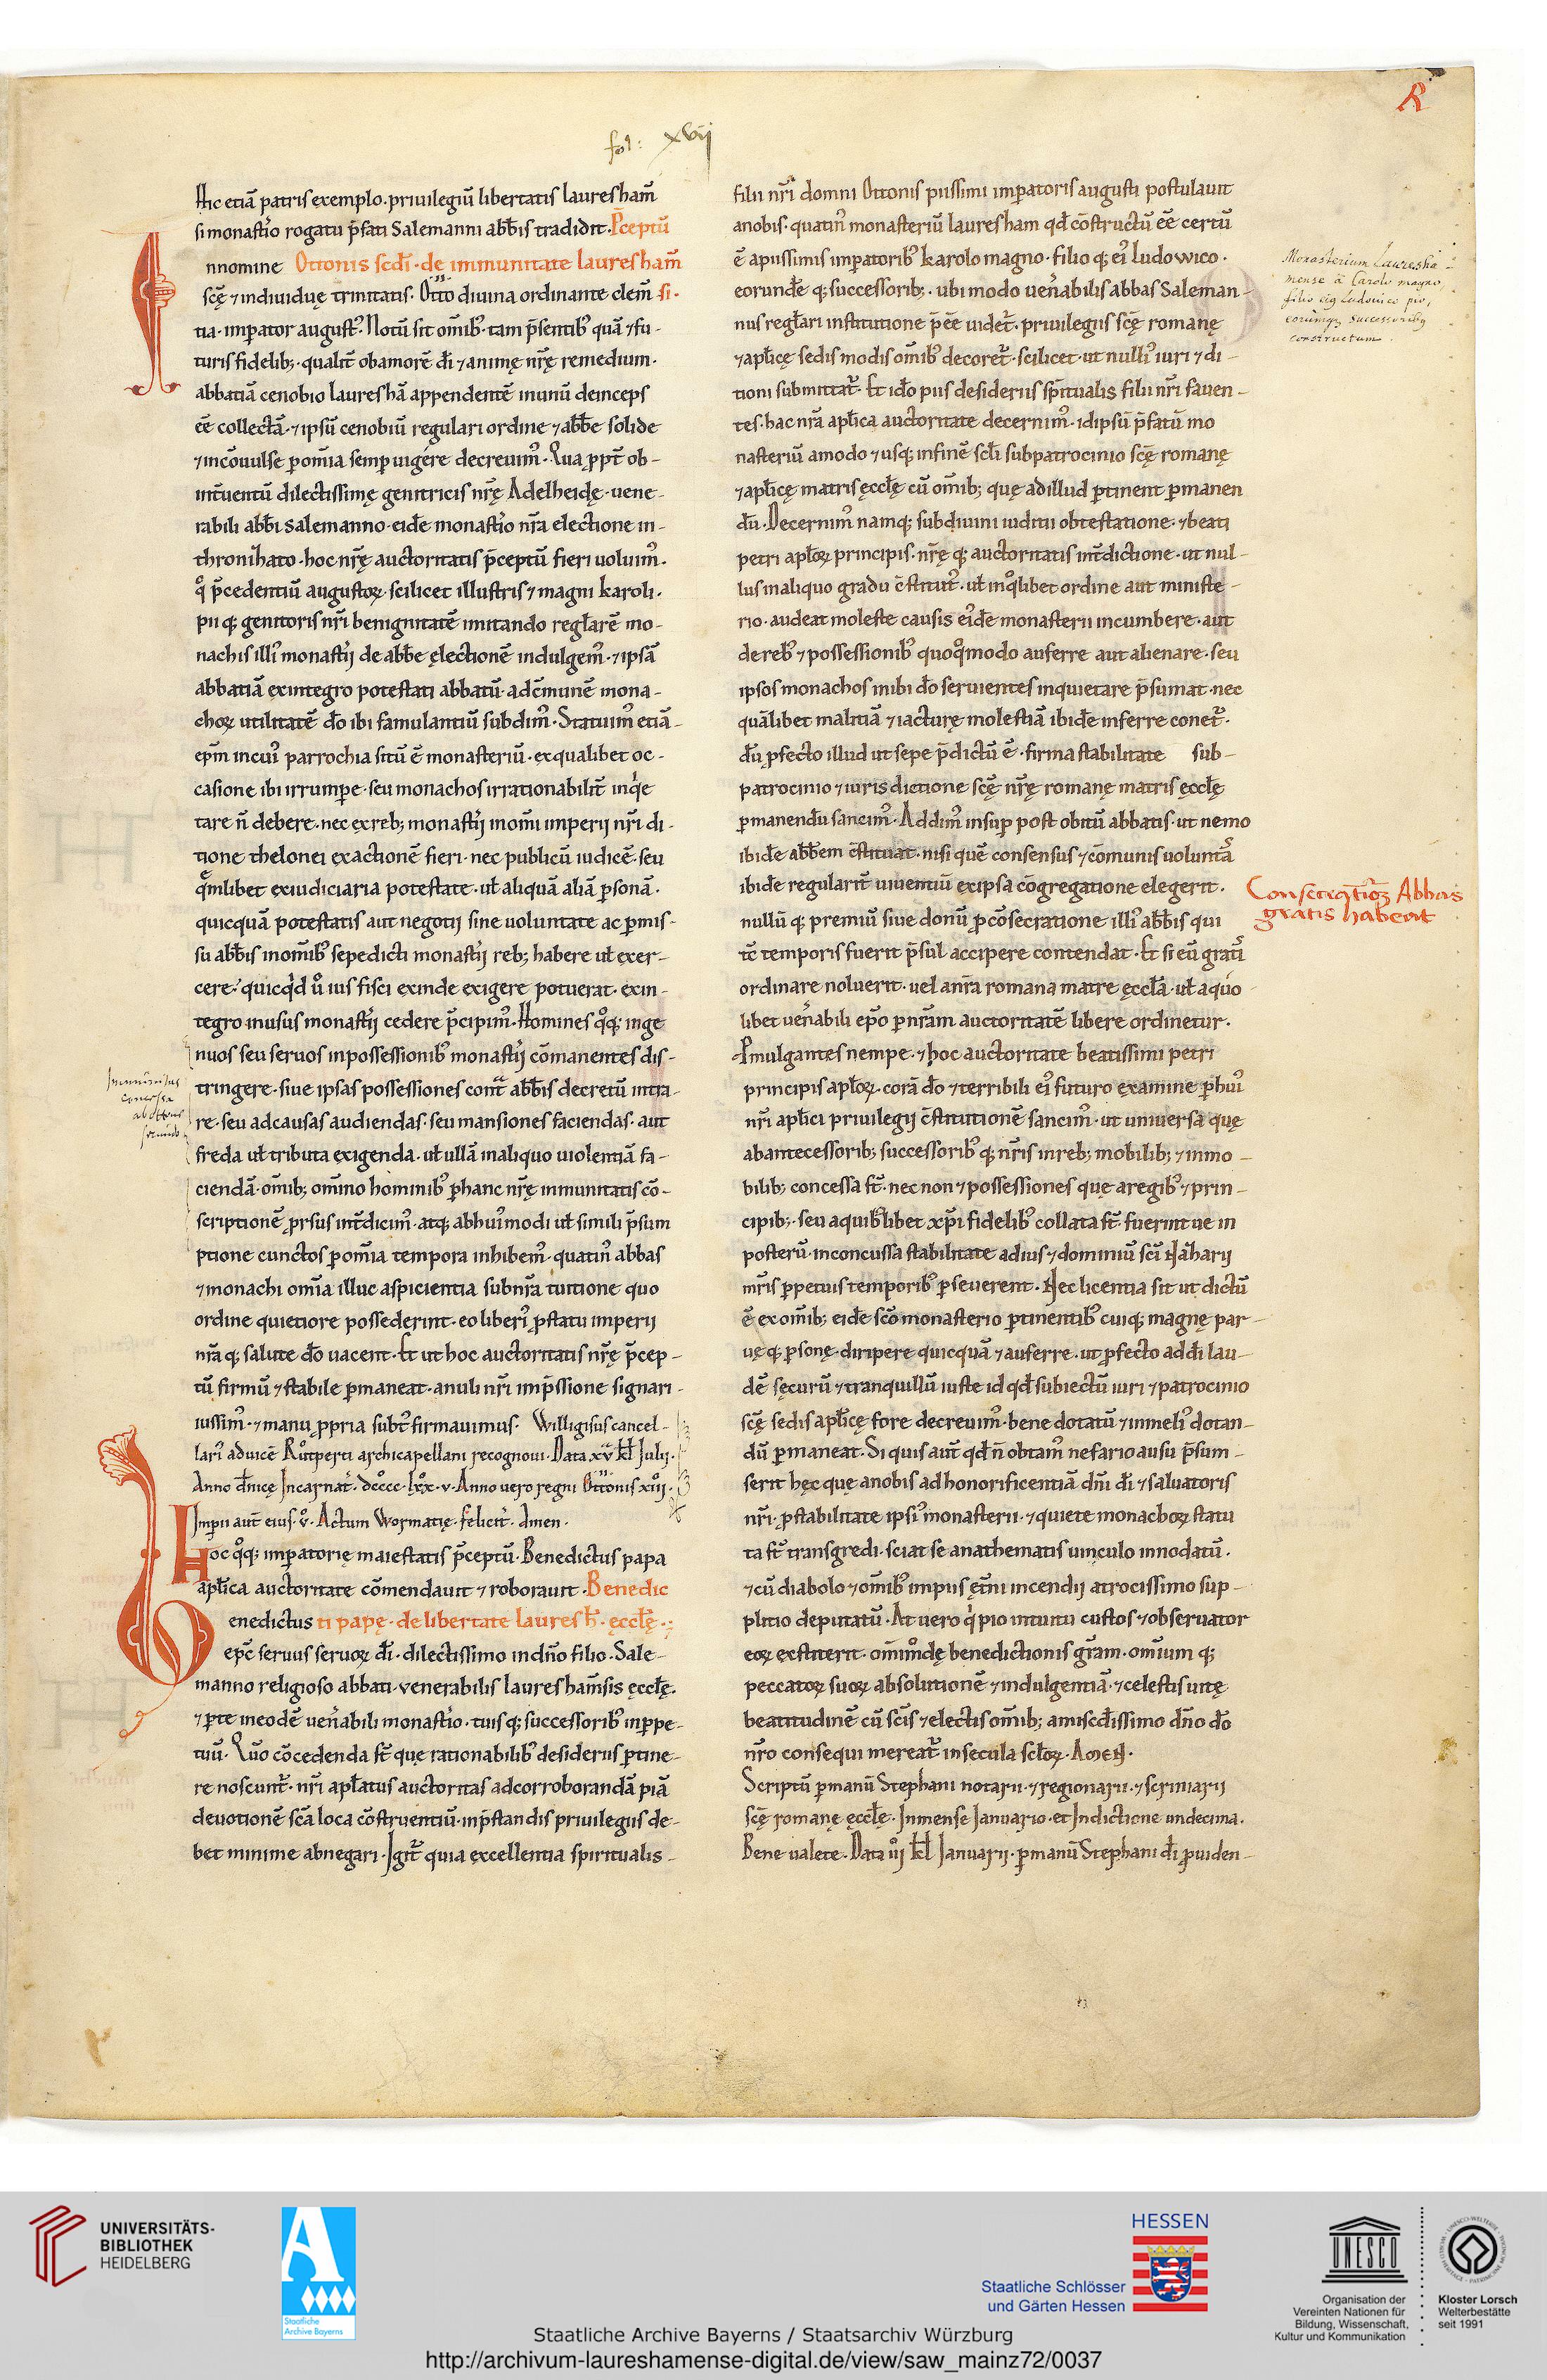 R
fol: xvij
Hic etiā patris exemplo. priuilegiū libertatis lauresham̄
si monast̓io rogatu p̄fati Salemanni abb̄is tradidit. P̄ceptū
nnomine Ottonis sc̄di · de immunitate lauresham̄
scę ⁊ indiuiduę trinitatis. Otto diuina ordinante clem̄ si·
tia· imperator august᾿. Notū sit om̄ib᾿· tam p̄sentib᾿ quā ⁊ fu-
turis fidelib;· qualit̄ ob amorē dī ⁊ animę nr̄ę remedium·
abbatiā cenobio laureshā appendentē in unū deinceps
ēē collectā· ⁊ ipsū cenobiū regulari ordine ⁊ abb̄e solide
⁊ incōuulse p om̄ia semp uigere decreuim᾿. Qua ppt̄ ob-
int̄uentū dilectissimę genitricis nr̄ę Adelheidę· uene-
rabili abb̄i salemanno· eidē monast̓io nr̄a electione in-
thronizato· hoc nr̄ę auctoritatis p̄ceptū fieri uoluim᾿.
q̊ p̄cedentiū augustoꝝ· scilicet illustris ⁊ magni karoli.
pii q; genitoris nr̄i benignitatē imitando reglarē mo-
nachis illi᾿ monast̓ij de abb̄e ęlectionē indulgem᾿· ⁊ ipsā
abbatiā ex integro potestati abbatū· ad cōmunē mona-
choꝝ utilitatē dō ibi famulantiū subdim᾿. Statuim᾿ etiā-
ep̄m in cui᾿ parrochia sitū ē monasteriū· ex qualibet oc-
casione ibi irrumpe· seu monachos irrationabilit̄ inq̓e
tare n̄ debere· nec ex reb; monast̓ij in om̄i imperij nr̄i di-
tione thelonei exactionē fieri· nec publicū iudicē· seu
q̄mlibet ex iudiciaria potestate· ut̄ aliquā aliā psonā·
quicquā potestatis aut negotij sine uoluntate ac pmis-
su abb̄is in om̄ib᾿ sepedicti monast̓ij reb; habere ut̄ exer-
cere· quicq̓d ů ius fisci exinde exigere potuerat· ex in-
tegro in usus monast̓ij cedere p̄cipim᾿. Homines q̊q; inge
nuos seu seruos in possessionib᾿ monast̓ij cōmanentes dis-
tringere· siue ipsas possessiones cont̄ abb̄is decretū intra-
re· seu ad causas audiendas· seu mansiones faciendas· aut
freda ut̄ tributa exigenda· ut̄ ullā in aliquo uiolentiā fa-
ciendā· om̄ib; om̄ino hominib᾿ p hanc nr̄ę inmunitatis cō-
scriptionē prsus int̄dicim᾿· atq; ab hui᾿modi ut̄ simili p̄sum
ptione cunctos p om̄ia tempora inhibem᾿· quatin᾿ abbas
⁊ monachi om̄ia illuc aspicientia sub nr̄a tuitione quo
ordine quietiore possederint· eo liberi᾿ p statu imperij
nr̄a q; salute dō uacent. Et ut hoc auctoritatis nr̄ę p̄cep-
tū firmū ⁊ stabile pmaneat· anuli nr̄i imp̄ssione signari-
iussim᾿· ⁊ manu ppria subt̄ firmauimus· Willigisus cancel-
lari᾿ aduicē Růtperti archicapellani recognoui. Data xv kl̄ Julij.
Anno dn̄icę Incarnat̄. dcccc. lxx. v. Anno uero regni Ottonis xiij.
Imperii aut̄ eius. v. Actum Wormatię. felicit̄. Amen.
Hoc q̊q; imperatorię maiestatis p̄ceptū· Benedictus papa
ap̄lica auctoritate cōmendauit ⁊ roborauit. Benedic
enedictus ti papę· de libertate lauresh̄· ęcclę.
ep̄c seruus seruoꝝ dī· dilectissimo in dn̄o filio. Sale-
manno religioso abbati· venerabilis laureshamsis ęcclę.
⁊ pte in eodē ueñabili monast̓io· tuis q; successorib᾿ in ppe-
tuū. Qūo cōcedenda st̄ quę rationabilib᾿ desideriis ptine-
re noscunt̄· nr̄i apl̄atus auctoritas ad corroborandā piā
deuotionē sc̄a loca cōstruentiū· in p̄standis priuilegiis de-
bet minime abnegari. Igit̄ quia excellentia spiritualis-
filii nr̄i domni Ottonis piissimi imperatoris augusti postulauit
a nobis· quatin᾿ monasteriū lauresham qd̄ cōstructū ēē certū
ē a piissimis imperatorib᾿ karolo magno· filio q; ei᾿ ludowico·
eorundē q; successorib;· ubi modo ueñabilis abbas Saleman-
nus reglari institutione p̄ēē uidet̄· priuilegiis scę romanę
⁊ aplicę sedis modis om̄ib᾿ decoret̄· scilicet ut nulli᾿ iuri ⁊ di-
tioni submittat̄. Et idō piis desideriis sp̄itualis filii nr̄i fauen-
tes· hac nr̄a ap̄lica auctoritate decernim᾿· id ipsū p̄fatū mo
nasteriū amodo ⁊ usq; in finē scl̄i sub patrocinio scę romanę
⁊ aplicę matris ęcclę cū om̄ib; quę ad illud ptinent pmanen
dū. Decernim᾿ namq; sub diuini iudicii obtestatione· ⁊ beati
petri apl̄oꝝ principis· nr̄ę q; auctoritatis int̄dictione· ut nul-
lus in aliquo gradu c̄stitut᾿· ut̄ in q̊libet ordine aut ministe-
rio· audeat moleste causis ei᾿dē monasterii incumbere· aut
de reb᾿ ⁊ possessionib᾿ quoq̊modo auferre aut alienare· seu
ipsos monachos inibi dō seruientes inquietare p̄sumat· nec
quālibet malitiā ⁊ iacturę molestiā ibidē inferre conet̄·
dū pfecto illud ut sepe p̄dictū ē· firma stabilitate sub-
patrocinio ⁊ iuris dictione scę nr̄ę romanę matris ęcclę
pmanendū sancim᾿. Addim᾿ insup post obitū abbatis· ut nemo
ibidē abbem c̄stituat· nisi quē consensus ⁊ cōmunis uoluntā
ibidē regularit̄ uiuentiū ex ipsa cōgregatione elegerit.
nullū q; premiū siue donū p cōsecratione illi᾿ abb̄is qui
tc̄ temporis fuerit p̄sul accipere contendat. Et si eū grati᾿
ordinare noluerit· uel a nr̄a romana matre ęcclā· ut̄ a quo
libet ueñabili ep̄o p nr̄am auctoritatē libere ordinetur.
Pmulgantes nempe· ⁊ hoc auctoritate beatissimi petri
principis apl̄oꝝ· corā dō ⁊ terribili ei᾿ futuro examine p hui᾿
nr̄i ap̄lici priuilegij c̄stitutionē sancim᾿· ut uniuersa quę
ab antecessorib; successorib᾿ q; nr̄is in reb; mobilib; ⁊ inmo-
bilib; concessa st̄· nec non ⁊ possessiones quę a regib᾿ ⁊ prin-
cipib;· seu a quib᾿libet xp̄i fidelib᾿ collata st̄ fuerint ue in
posterū· inconcussa stabilitate ad ius ⁊ dominiū sc̄i Nazharij
mr̄is ppetuis temporib᾿ pseuerent. Nec licentia sit ut dictū
ē ex om̄ib; eidē sc̄o monasterio ptinentib᾿ cuiq; magnę par-
uę q; psonę diripere quicquā ⁊ auferre· ut pfecto ad dī lau-
dē sęcurū ⁊ tranquillū iuste id qd̄ subiectū iuri ⁊ patrocinio
scę sedis ap̄licę fore decreuim᾿· bene dotatū ⁊ in meli᾿ dotan-
dū pmaneat. Si quis aut̄ qd̄ n̄ obtam᾿ nefario ausu p̄sum-
serit hęc quę a nobis ad honorificentiā dn̄i dī ⁊ saluatoris
nr̄i· p stabilitate ipsi᾿ monasterii· ⁊ quiete monachoꝝ statu
ta st̄ transgredi· sciat se anathematis uinculo innodatū.
⁊ cū diabolo ⁊ om̄ib᾿ impiis ęt̄ni incendij atrocissimo sup-
plicio deputatū. At uero q̓ pio intuitu custos ⁊ obseruator
eoꝝ extiterit· om̄im̊dę benedictionis grām· om̄ium q;
peccatoꝝ suoꝝ absolutionē ⁊ indulgentiā· ⁊ celestis uitę
beatitudinē cū sc̄is ⁊ electis om̄ib; a misc̄dissimo dn̄o dō
nr̄o consequi mereat̄ in secula scl̄oꝝ. Amen.
Scriptū p manū Stephani notarii· ⁊ regionarii· ⁊ scriniarij
scę romanę ęcclę. In mense Januario· et Indictione undecima.
Bene ualete. Data iiij kl̄ Januarij· p manū Stephani dī p̄uiden-
Monasterium Laureshā-
mense â Carolo magno,
filio eiq Ludouico pio,
eorumq; successoribq
constructum.
Consecrationē Abbas
gratis habeat
Immunitas
concessa
ab Ottone
secundo
UNIVERSITÄTS-
BIBLIOTHEK
HEIDELBERG
Staatliche
Archive Bayerns
HESSEN
Staatliche Schlösser
und Gärten Hessen
UNESCO
Organisation der
Vereinten Nationen für
Bildung, Wissenschaft,
Kultur und Kommunikation
Kloster Lorsch
Welterbestätte
seit 1991
Staatliche Archive Bayerns / Staatsarchiv Würzburg
http://archivum-laureshamense-digital.de/view/saw_mainz72/0037